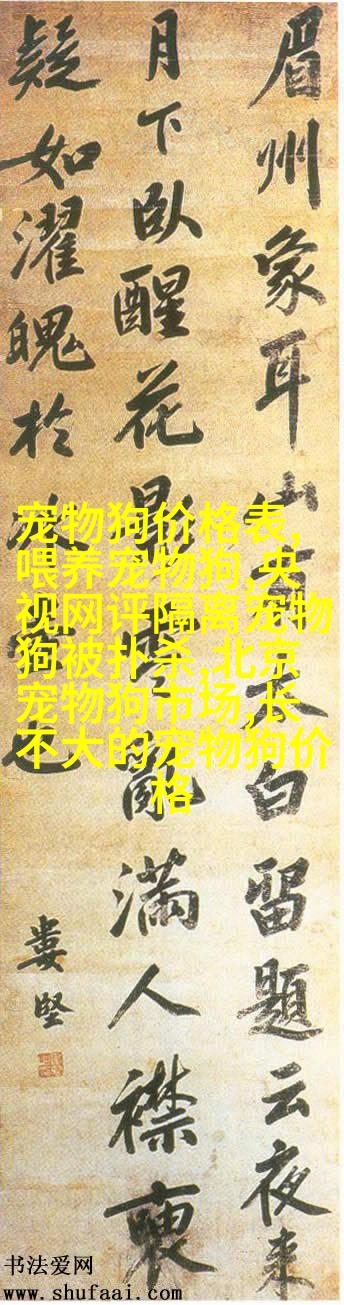 眉州象耳山有太白留題云夜来
月下臥醒花影零亂滿人襟
疑如濯魄於冰壺也
婁堅
宠物狗价格表,
喂养宠物狗,央
视网评隔离宠物
狗被扑杀,北京
宠物狗市场,长
不大的宠物狗价
格
书法爱网
www.shufaai.com